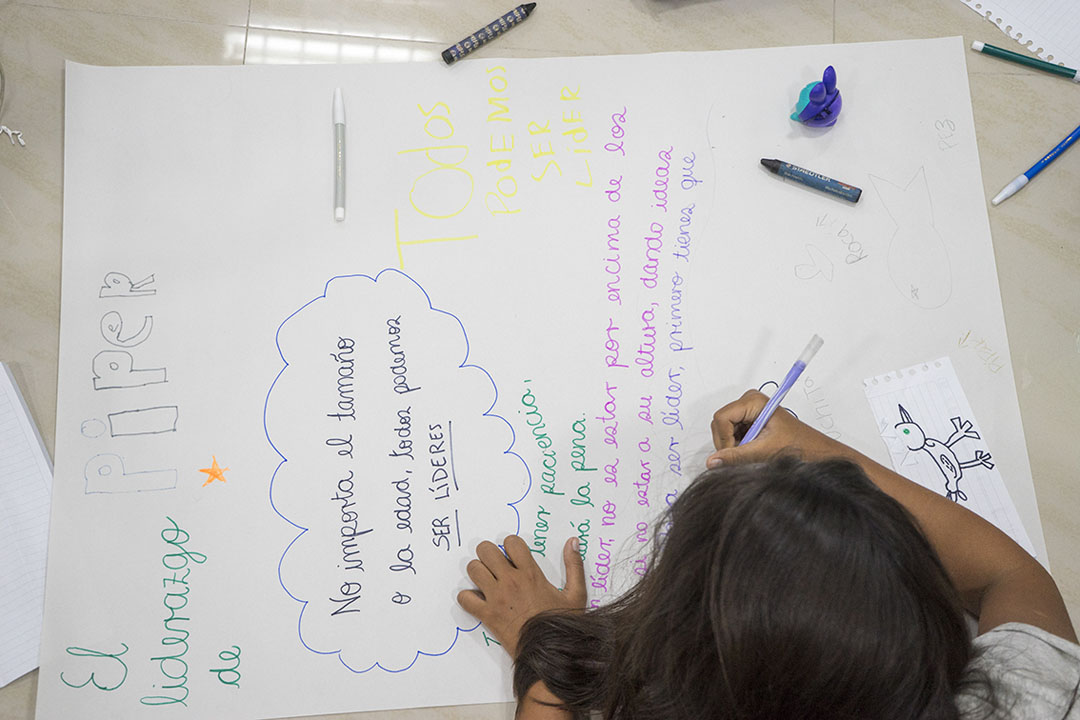 El
liderazgo
de
Piper
No importa el tamaño
o la edad, todos podemos
SER LÍDERES
TODOS
PODEMOS
SER
LIDER
tener paciencia,
la pena.
líder, no es estar por encima de los
si no estar a su altura, dando ideas
ser líder, primero tienes que
STAEDTLER